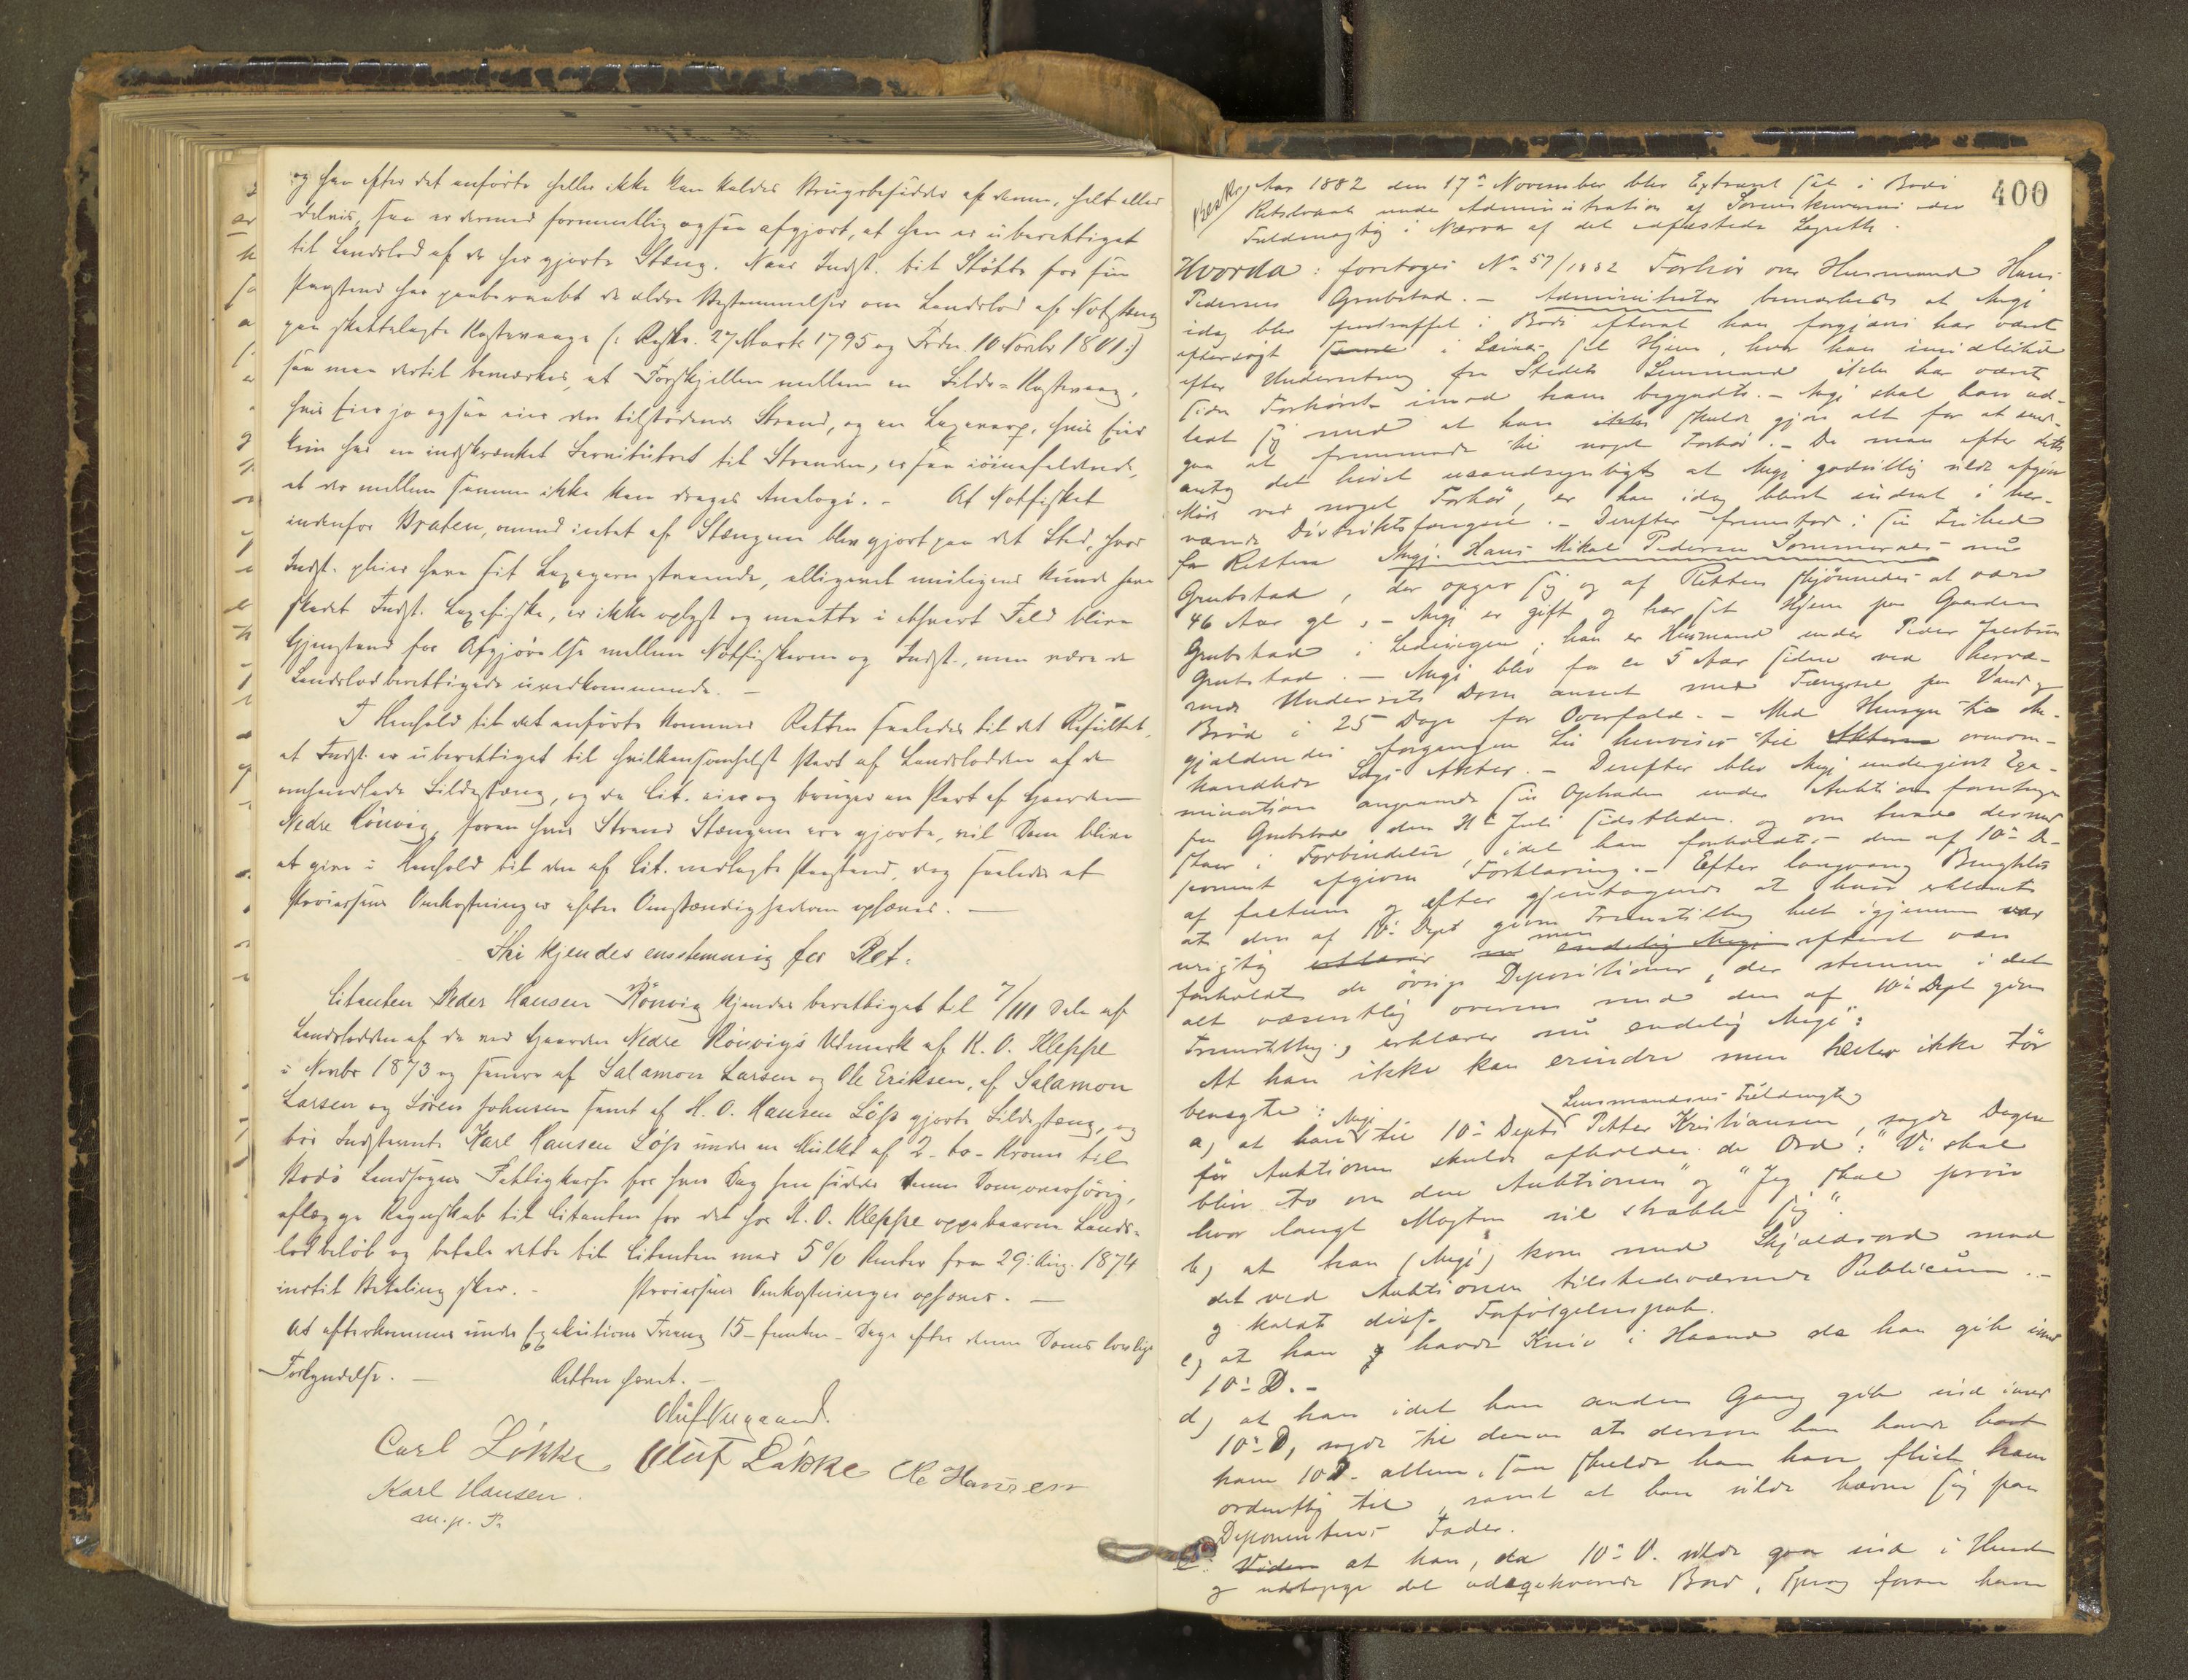 og han efter det anførte heller ikke kan kaldes Brugsbesidder af denne, helt eller
delvis, saa er dermed formentlig ogsaa afgjort, at han er uberettiget
til Landslod af de her gjorte Stæng. Naar Indst. til Støtte for sin
Paastand har paaberaabt de ældre Bestemmelser om Landslod af Notstæng
paa skattelagte Kastevaage (: Reskr. 27 Marts 1795 og Frdn. 10 Novbr 1801 :)
saa maa dertil bemærkes, at Forskjellen mellem en Silde-Kastevaag,
hvis Eier jo ogsaa eier den tilstødende Strand, og en Laxevarp, hvis Eier
kun har en indskrænket Servitutret til Stranden, er saa iøinefaldende,
at der mellem samme ikke kan drages Analogi. - At Notfisket
indenfor Braken, omend intet af Stængene blev gjort paa det Sted, hvor
Indst. pleier have sit Laxegarn staaende, alligevel muligens kunde have
skadet Indst. Laxefiske, er ikke oplyst og maatte i ethvert Fald blive
Gjenstand for Afgjørelse mellem Notfiskerne og Indst., men være de
Landslodberettigede uvedkommende. -
I Henhold til det anførte kommer Retten saaledes til det Resultat,
at Indst. er uberettiget til hvilkensomhelst Part af Landslodden af de
omhandlede Sildestæng, og da Cit. eier og bruger en Part af Gaarden
Nedre Rønvig, foran hvis Strand Stængene ere gjorte, vil Dom blive
at give i Henhold til den af Cit. nedlagte Paastand, dog saaledes at
Processens Omkostninger efter Omstændighederne ophæves. -
Thi kjendes eenstemmig for Ret:
Citanten Peder Hansen Rønvig kjendes berettiget til 7/111 Dele af
Landslodden af de ved Gaarden Nedre Rønvigs Udmark af K. O. Kleppe
i Novbr 1873 og senere af Salamon Larsen og Ole Eriksen, af Salamon
Larsen og Søren Johnsen samt af H. O. Hansen Løp gjorte Sildestæng, og
bør Indstevnte Karl Hansen Løp under en Mulkt af 2 - to - Kroner til
Bodø Landsogns Fattigkasse for hver Dag han sidder denne Dom overhørig,
aflægge Regnskab til Citanten for det for K. O. Kleppe oppebaarne Lands-
lodbeløb og betale dette til Citanten med 5 % Renter fra 29: Aug. 1874
indtil Betaling sker. - Processens Omkostninger ophæves. -
At efterkommes under Exekutions Tvang 15 - femten - Dage efter denne Doms lovlige
Forkyndelse. - Retten hævet. -
Carl Løkke Oluf Løkke Ole Hansen
Karl Hansen.
m. p. P.
400
Aar 1882 den 17de November blev Extraret sat i Bodø
Retslokale under Administration af Sorenskriverens edsv
Fuldmægtig i Nærvær af det edfæstede Lagrette.
Hvorda: foretoges No 57/1882 Forhør over Husmand Hans
Pedersen Grubstad. - Administrator bemærkede at Angj
idag blev paatruffet i Bodø efterat han forgjæves har været
eftersøgt i sit Hjem, hvor han imidlertid
efter Underretning fra Stedets Lensmand ikke har været
siden Forhøret imod ham begyndte. - Angj skal have ud-
ladt sig med at han skulde gjøre alt for at und-
gaa at fremmøde til noget Forhør. - Da man efter dette
antog det høist usandsynligt at Angj godvillig vilde afgive
Møde ved noget Forhør, er han idag blevet indsat i her-
værende Distriktsfængsel. - Derefter fremstod i sin Frihed
for Retten Angj. Hans Mikal Pedersen Sommernes nu
Grubstad, der opgav sig og af Retten skjønnedes at være
46 Aar gl, - Angj er gift og har sit Hjem paa Gaarden
Grubstad i Ledingen; han er Husmand under Peder Jakobsen
Grubstad. - Angj blev for ca 5 Aar siden ved herva-
rende Underrets Dom anseet med Fængsel paa Vand og
Brød i 25 Dage for Overfald. - Med Hensyn til An-
gjældendes forgangne Liv henvises til Akterne ovenom-
handlede Sags Akter. - Derefter blev Angj undergivet Exa-
mination angaaende sin Optræden under Auktionsforretningen
paa Grubstad den 31te Juli sidstleden og om hvad dermed
staar i Forbindelse, idet han forholdt den af 10de De-
ponent afgivne Forklaring. - Efter langvarig Benægtelse
af factum og efter gjentagende at have erklæret
at den af 10de Dept givne Fremstilling helt igjennem var
urigtig erklærer nu men endelig Angj efterat være
forholdt de øvrige Depositioner, der stemme i det
alt væsentlig overens med den af 10de Dept givne
Fremstilling, erklærer nu endelig Angj:
At han ikke kan erindre men heller ikke tør
benægte:
Lensmandens Fuldmægtig
a) at han Angj til 10de Depts Petter Kristiansen, sagde Dagen
før Auktionen skulde afholdes de Ord: "Vi skal
blive to om den Auktionen" og "Jeg skal prøve
hvor langt Magten vil strække sig".
b) at han (Angj) kom med Skjældsord mod
det ved Auktionen tilstedeværende Publicum. -
og kaldte disse Forfølgelsespak.
c) at han havde Kniv i Haand da han gik imod
10de D. -
d) at han idet han anden Gang gik ind imod
10de D, sagde til denne at dersom han havde havt
ham 10 D. allene, saa skulde han have flidt ham
ordentlig til, samt at han vilde hævne sig paa
Deponentens Fader.
e: Viden at han, da 10de D. vilde gaa ind i Huset
og udbringe det udlagte Bord, sprang foran ham